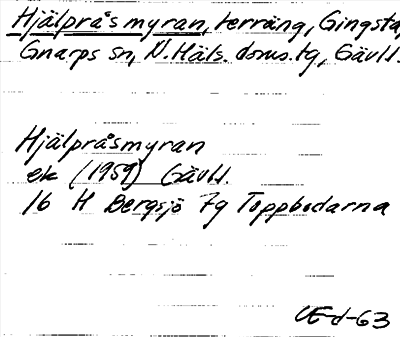 Hjälpråsmyran, terräng, Gingsta,
Gnarps sn, N. Häls. doms.tg, Gävl.l.
Hjälpråsmyran
ek (1959) Gävl.l.
16 H Bergsjö 7g Toppbodarna
CE-d-63